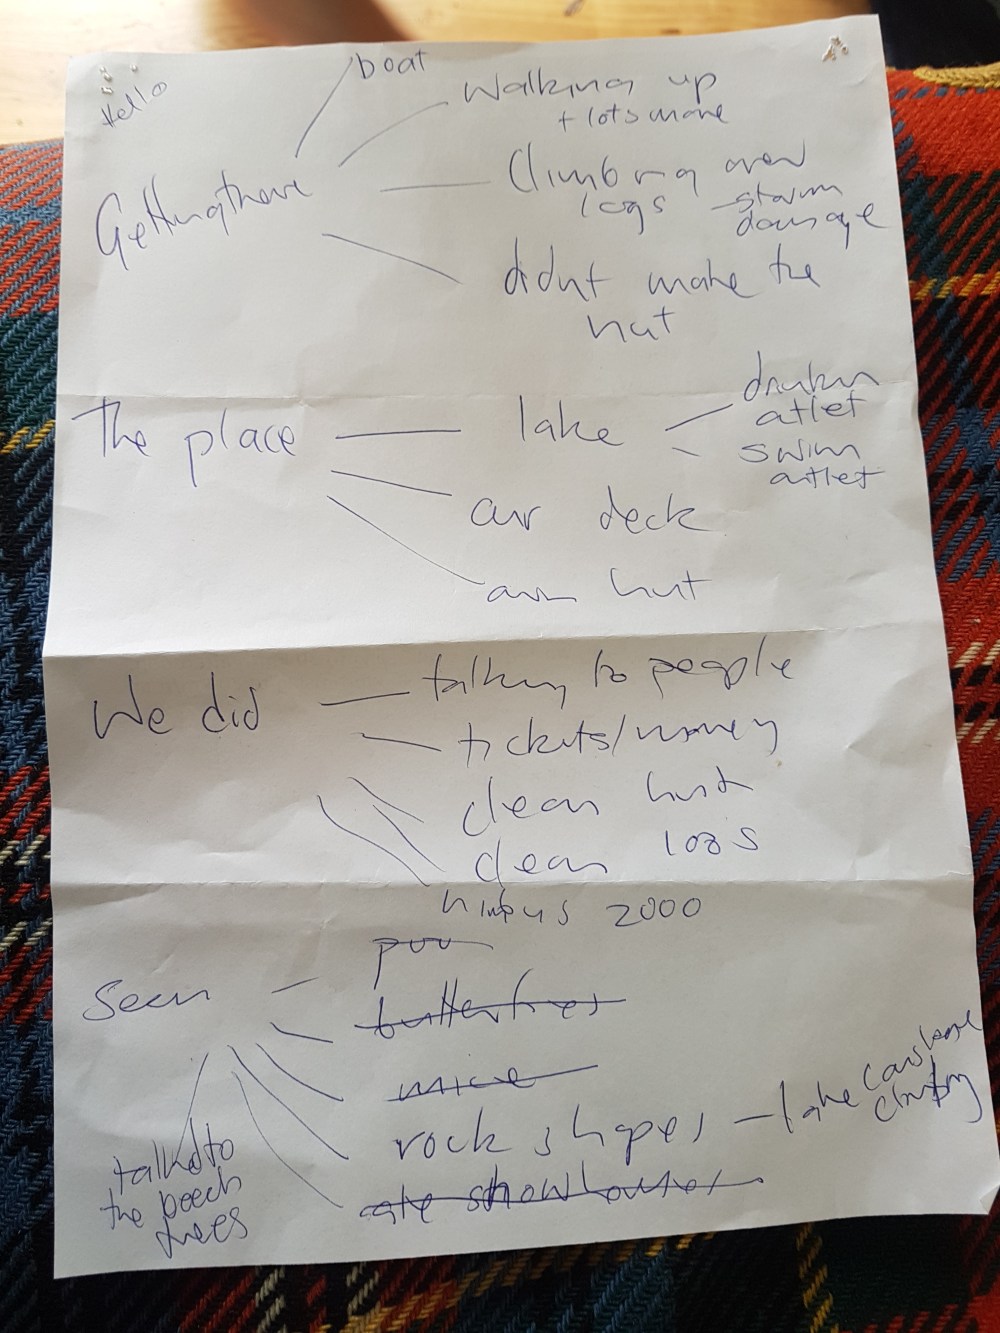 Hello
boat
Walking up
+ lots more
Getting there
Climbing over
logs - storm
damage
didnt make the
hut
The place
lake
drink
outlet
swim
outlet
our deck
our hut
We did
talking to people
tickets/money
clean hut
clean logs
nimbus 2000
poo
Seen
butterflies
mice
rock shapes - lake
climbing
talked to
the beech
trees